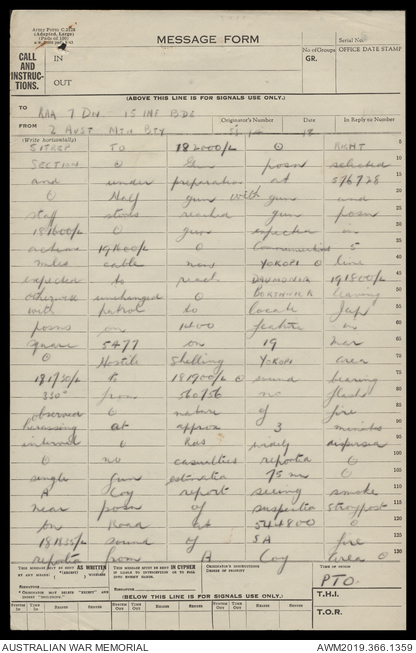 Army Form C.2128
(Adapted, Large)
(Pads of 100)
MESSAGE FORM
Serial No.
CALL
AND
INSTRUC-
TIONS.
IN
OUT
No. of Groups
GR.
OFFICE DATE STAMP
(ABOVE THIS LINE IS FOR SIGNALS USE ONLY.)
TO RAA 7 Div 15 INF BDE
FROM 2 Aust Mtn Bty
Originator's Number
Date
In Reply to Number
(Write horizontally)
SITREP TO 182000/L O RIGHT
SECTION O Gun posn selected
and under preparation at 576728
O Half gun with gun and
staff stores reached gun posn
181600/L O gun expected in
action 191600/L O Communication 5
miles cable now YOKOPI O line
expected to reach DAUMOINA 191800/L
otherwise unchanged O leaving
with patrol to locate Jap
posns on 1400 feature in
square 5477 on 19 Mar
O Hostile Shelling YOKOPI area
181730/L to 181900/L O sound bearing
330° from 560756 no flash
observed O nature of fire
harassing at approx 3 minutes
interval O Rds widely dispersed
O no casualties reported O
single gun estimated 75 mm O
A Coy report seeing smoke
near posn of suspected
on Road at 544800 O
181835/L sound of SA fire
reported from A Coy area O
THIS MESSAGE MAY BE SENT AS WRITTEN
BY ANY MEANS
(EXCEPT)
WIRELESS
IF LIABLE TO INTERCEPTION OR TO FALL
INTO ENEMY HANDS, THIS MESSAGE MUST BE SENT IN CIPHER
ORIGINATOR'S INSTRUCTIONS
DEGREE OF PRIORITY
TIME OF ORIGIN
PTO
SIGNATURE
(BELOW THIS LINE IS FOR SIGNALS USE ONLY.)
T.H.I.
System In
Time In
Reader
Sender
System Out
Time Out
T.O.R.
AUSTRALIAN WAR MEMORIAL
AWM2019.366.1359